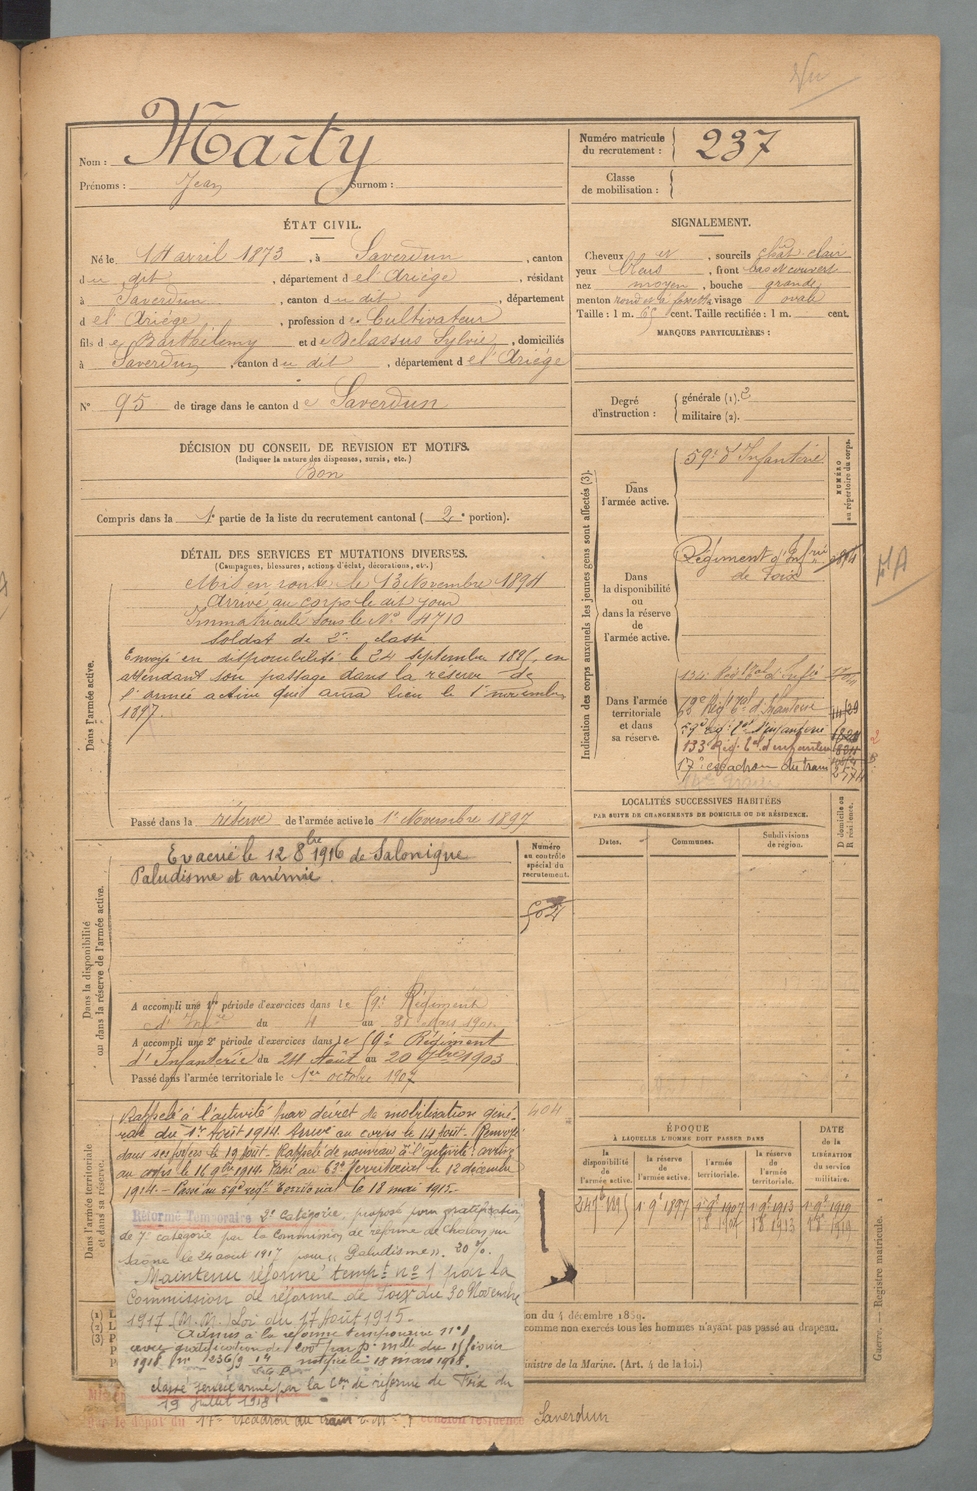 Vu
Nom : Marty
Prénoms : Jean Surnom :
Numéro matricule du recrutement : 237
Classe de mobilisation :
ÉTAT CIVIL.
Né le 14 avril 1873, à Saverdun, canton
du dit, département de l'Ariège, résidant
à Saverdun, canton du dit, département
de l'Ariège, profession de Cultivateur
fils de Barthélemy et de Delassus Sylvie, domiciliés
à Saverdun, canton du dit, département de l'Ariège
N° 95 de tirage dans le canton de Saverdun
SIGNALEMENT.
Cheveux et, sourcils chât. clair
yeux bleus, front bas et couvert
nez moyen, bouche grande,
menton rond et à fossette visage ovale
Taille : 1 m. 65 cent. Taille rectifiée : 1 m. cent.
MARQUES PARTICULIÈRES :
Degré d'instruction : générale (1). 2
militaire (2).
DÉCISION DU CONSEIL DE REVISION ET MOTIFS.
(Indiquer la nature des dispenses, sursis, etc.)
Bon
Compris dans la 1e partie de la liste du recrutement cantonal (2e portion).
DÉTAIL DES SERVICES ET MUTATIONS DIVERSES.
(Campagnes, blessures, actions d'éclat, décorations, etc.)
Dans l'armée active.
Mis en route le 13 Novembre 1894
Arrivé au corps le dit jour
Immatriculé sous le N° 4710
Soldat de 2e classe
Envoyé en disponibilité le 24 septembre 1895, en
attendant son passage dans la réserve de
l'armée active qui aura lieu le 1er novembre
1897.
Passé dans la réserve de l'armée active le 1er Novembre 1897
Indication des corps auxquels les jeunes gens sont affectés (3).
NUMÉRO au répertoire du corps.
Dans l'armée active.
59e d'Infanterie
Dans la disponibilité ou dans la réserve de l'armée active.
Régiment d'Infrie
de Foix
Dans l'armée territoriale et dans sa réserve.
133 Rég. tal d'infanterie
17e escadron du train
HA
LOCALITÉS SUCCESSIVES HABITÉES
PAR SUITE DE CHANGEMENTS DE DOMICILE OU DE RÉSIDENCE.
Dates. Communes. Subdivisions de région. D domicile ou R résidence.
Dans la disponibilité ou dans la réserve de l'armée active.
Evacué le 12 8bre 1916 de Salonique
Paludisme et anémie.
Numéro au contrôle spécial du recrutement.
A accompli une 1re période d'exercices dans le 59e Régiment
d'Infie du 4 au 31 Mars 1901
A accompli une 2e période d'exercices dans le 59e Régiment
d'Infanterie du 24 Août au 20 7bre 1903
Passé dans l'armée territoriale le 1er octobre 1907
Dans l'armée territoriale et dans sa réserve.
Rappelé à l'activité par décret de mobilisation géné-
rale du 1er Août 1914. Arrivé au corps le 14 Août. Renvoyé
dans ses foyers le 19 Août. Rappelé de nouveau à l'activité; arrivé
au corps le 16 9bre 1914. Passé au 62e territorial le 12 décembre
1914. Passé au 59e régt territorial le 18 mai 1915.
404
Réforme Temporaire 2e catégorie, proposé pour gratification
de 7e catégorie par la Commission de réforme de Chalon sur
Saône le 24 août 1917 pour « Paludisme ». 20 %.
Maintenu réformé tempre n° 1 par la
Commission de réforme de Foix du 30 Novembre
1917 (M.M.) Loi du 17 Août 1915.
Admis à la réforme temporaire n° 1
avec gratification de
1918 notifiée le 18 mars 1918.
classé service armé par la Con de réforme de Foix du
19 juillet 1918
ÉPOQUE
À LAQUELLE L'HOMME DOIT PASSER DANS
la disponibilité de l'armée active. la réserve de l'armée active. l'armée territoriale. la réserve de l'armée territoriale.
DATE de la LIBÉRATION du service militaire.
1er 9e 1897
(1) L
(2) L
(3) P
on du 4 décembre 1889.
comme non exercés tous les hommes n'ayant pas passé au drapeau.
Ministre de la Marine. (Art. 4 de la loi.)
Guerre. — Registre matricule. 1
dépôt du 17e escadron du train résidence Saverdun